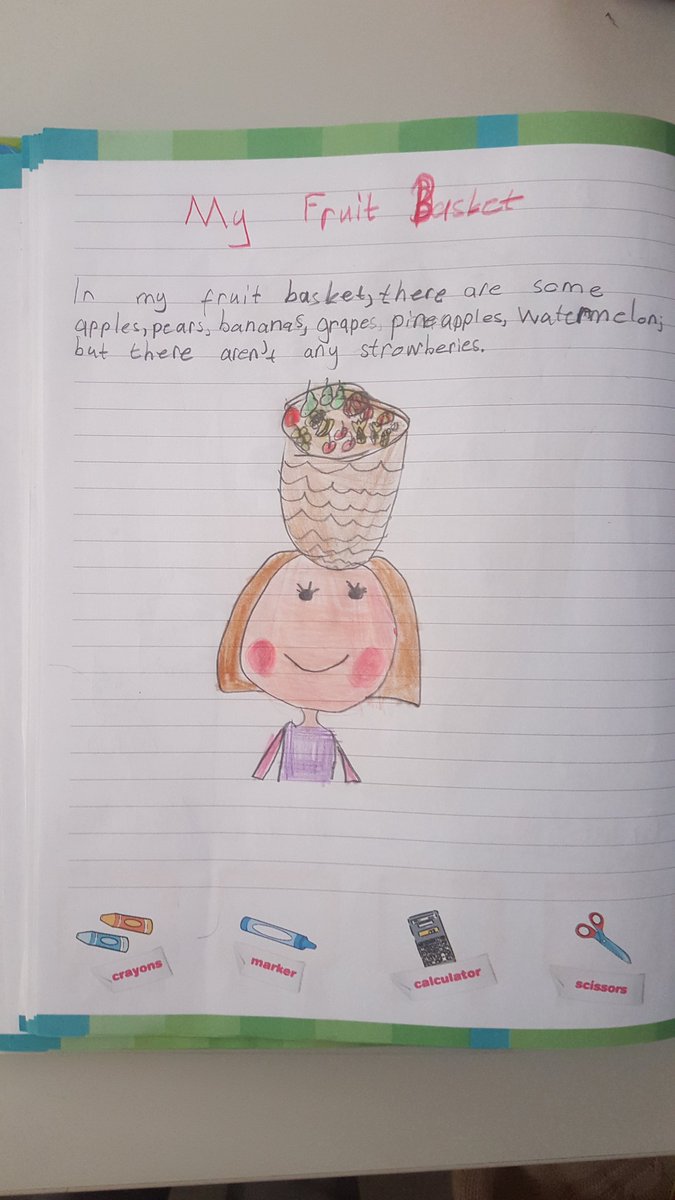 My Fruit Basket
In my fruit basket, there are some
apples, pears, bananas, grapes, pineapples, watermelon,
but there aren't any strowberies.
crayons
marker
calculator
scissors